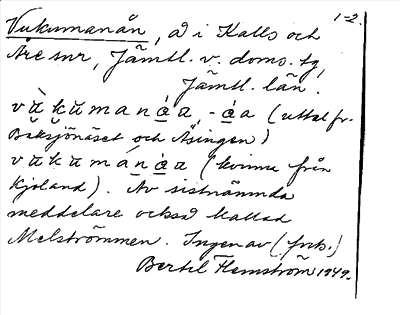 1-2.
Vukumanån, å i Kalls och
Åre snr, Jämtl. v. doms. tg,
Jämtl. län.
vùkumaná̱a, -á̱a (uttal fr.
Bäksjönäset och Äsingen)
vùkumáná̱a (kvinna från
Kjoland). Av sistnämnda
meddelare också kallad
Melströmmen. Ingen av (frb.)
Bertil Flemström 1949.